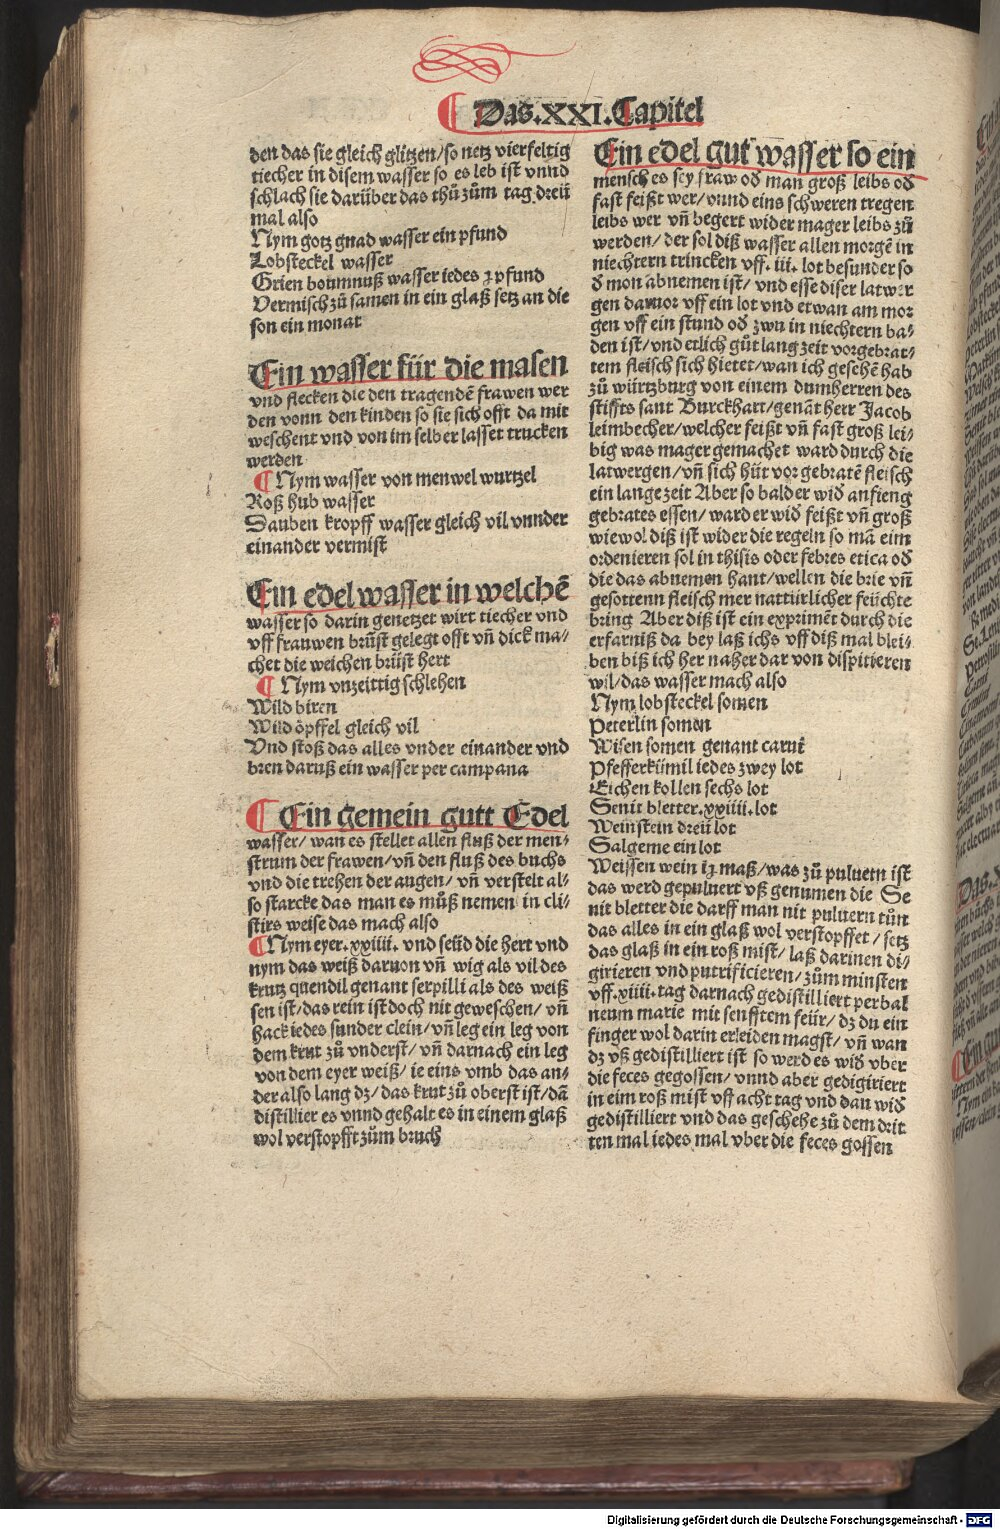 Das.XXI.Capitel
den das sie gleich glitzen/so netz vierfeltig
tiecher in disem wasser so es leb ist vnnd
schlach sie darüber das thů zům tag dreü
mal also
Nym gotz gnad wasser ein pfund
Lobsteckel wasser
Grien boumnuß wasser iedes ꝫ pfund
Vermisch zů samen in ein glaß setz an die
son ein monat
Ein wasser für die masen
vnd flecken die den tragendē frawen wer
den vonn den kinden so sie sich offt da mit
weschent vnd von im selber lasset trucken
werden
¶ Nym wasser von menwel wurtzel
Roß hub wasser
Dauben kropff wasser gleich vil vnnder
einander vermist
Ein edel wasser in welchē
wasser so darin genetzet wirt tiecher vnd
vff frauwen brüst gelegt offt vn̄ dick ma/
chet die weichen brüst hert
¶ Nym vnzeittig schlehen
Wild biren
Wild öpffel gleich vil
Vnd stoß das alles vnder einander vnd
bren daruß ein wasser per campana
¶ Ein gemein gutt Edel
wasser/ wan es stellet allen fluß der men/
strum der frawen/ vn̄ den fluß des buchs
vnd die trehen der augen/ vn̄ verstelt al/
so starcke das man es můß nemen in cli/
stirs weise das mach also
¶ Nym eyer.xxiiii. vnd seüd die hert vnd
nym das weiß daruon vn̄ wig als vil des
krutz quendil genant serpilli als des weiß
sen ist/das rein ist doch nit geweschen/ vn̄
hack iedes sunder clein/ vn̄ leg ein leg von
dem krut zů vnderst/ vn̄ darnach ein leg
von dem eyer weiß/ ie eins vmb das an/
der also lang dz/ das krut zů oberst ist/dā
distillier es vnnd gehalt es in einem glaß
wol verstopfft zům bruch
Ein edel gut wasser so ein
mensch es sey fraw od̄ man groß leibs od̄
fast feißt wer/ vnnd eins schweren tregen
leibs wer vn̄ begert wider mager leibs zů
werden/ der sol diß wasser allen morgē in
niechtern trincken vff. iii. lot besunder so
d̄ mon abnemen ist/ vnd esse diser latwer
gen daruor vff ein lot vnd etwan am mor
gen vff ein stund od̄ zwu in niechtern ba/
den ist/ vnd etlich gůt lang zeit vor gebrat/
tem fleisch sich hietet/wan ich gesehē hab
zů würtzburg von einem dumherren des
stiffts sant Burckhart/ genāt herr Jacob
leimbecher/ welcher feißt vn̄ fast groß lei/
big was mager gemachet ward durch die
latwergen/ vn̄ sich hüt vor gebratē fleisch
ein lange zeit Aber so balder wid̄ anfieng
gebrates essen/ ward er wid̄ feißt vn̄ groß
wiewol diß ist wider die regeln so mā eim
ordenieren sol in thisis oder febres etica od̄
die das abnemen hant/wellen die brie vn̄
gesottenn fleisch mer nattürlicher feüchte
bring Aber diß ist ein exprimēt durch die
erfarniß da bey laß ichs vff diß mal blei/
ben biß ich her naher dar von dispitieren
wil/das wasser mach also
Nym lobsteckel somen
Peterlin somen
Wisen somen genant carui
Pfefferkümil iedes zwey lot
Eichen kollen sechs lot
Senit bletter.xxiiii.lot
Weinstein dreü lot
Salgeme ein lot
Weissen wein iꝫ maß/was zů puluern ist
das werd gepuluert vß genumen die Se
nit bletter die darff man nit puluern tůnt
das alles in ein glaß wol verstopffet / setz
das glaß in ein roß mist/ laß darinen di/
girieren vnd putrificieren/ zům minsten
vff.xiiii.tag darnach gedistilliert per bal
neum marie mit senfftem feür/ dz du ein
finger wol darin erleiden magst/ vn̄ wan
dz vß gedistilliert ist so werd es wid̄ vber
die feces gegossen/ vnnd aber gedigiriert
in eim roß mist vff acht tag vnd dan wid̄
gedistilliert vnd das geschehe zů dem drit
ten mal iedes mal vber die feces gossen
Digitalisierung gefördert durch die Deutsche Forschungsgemeinschaft - DFG